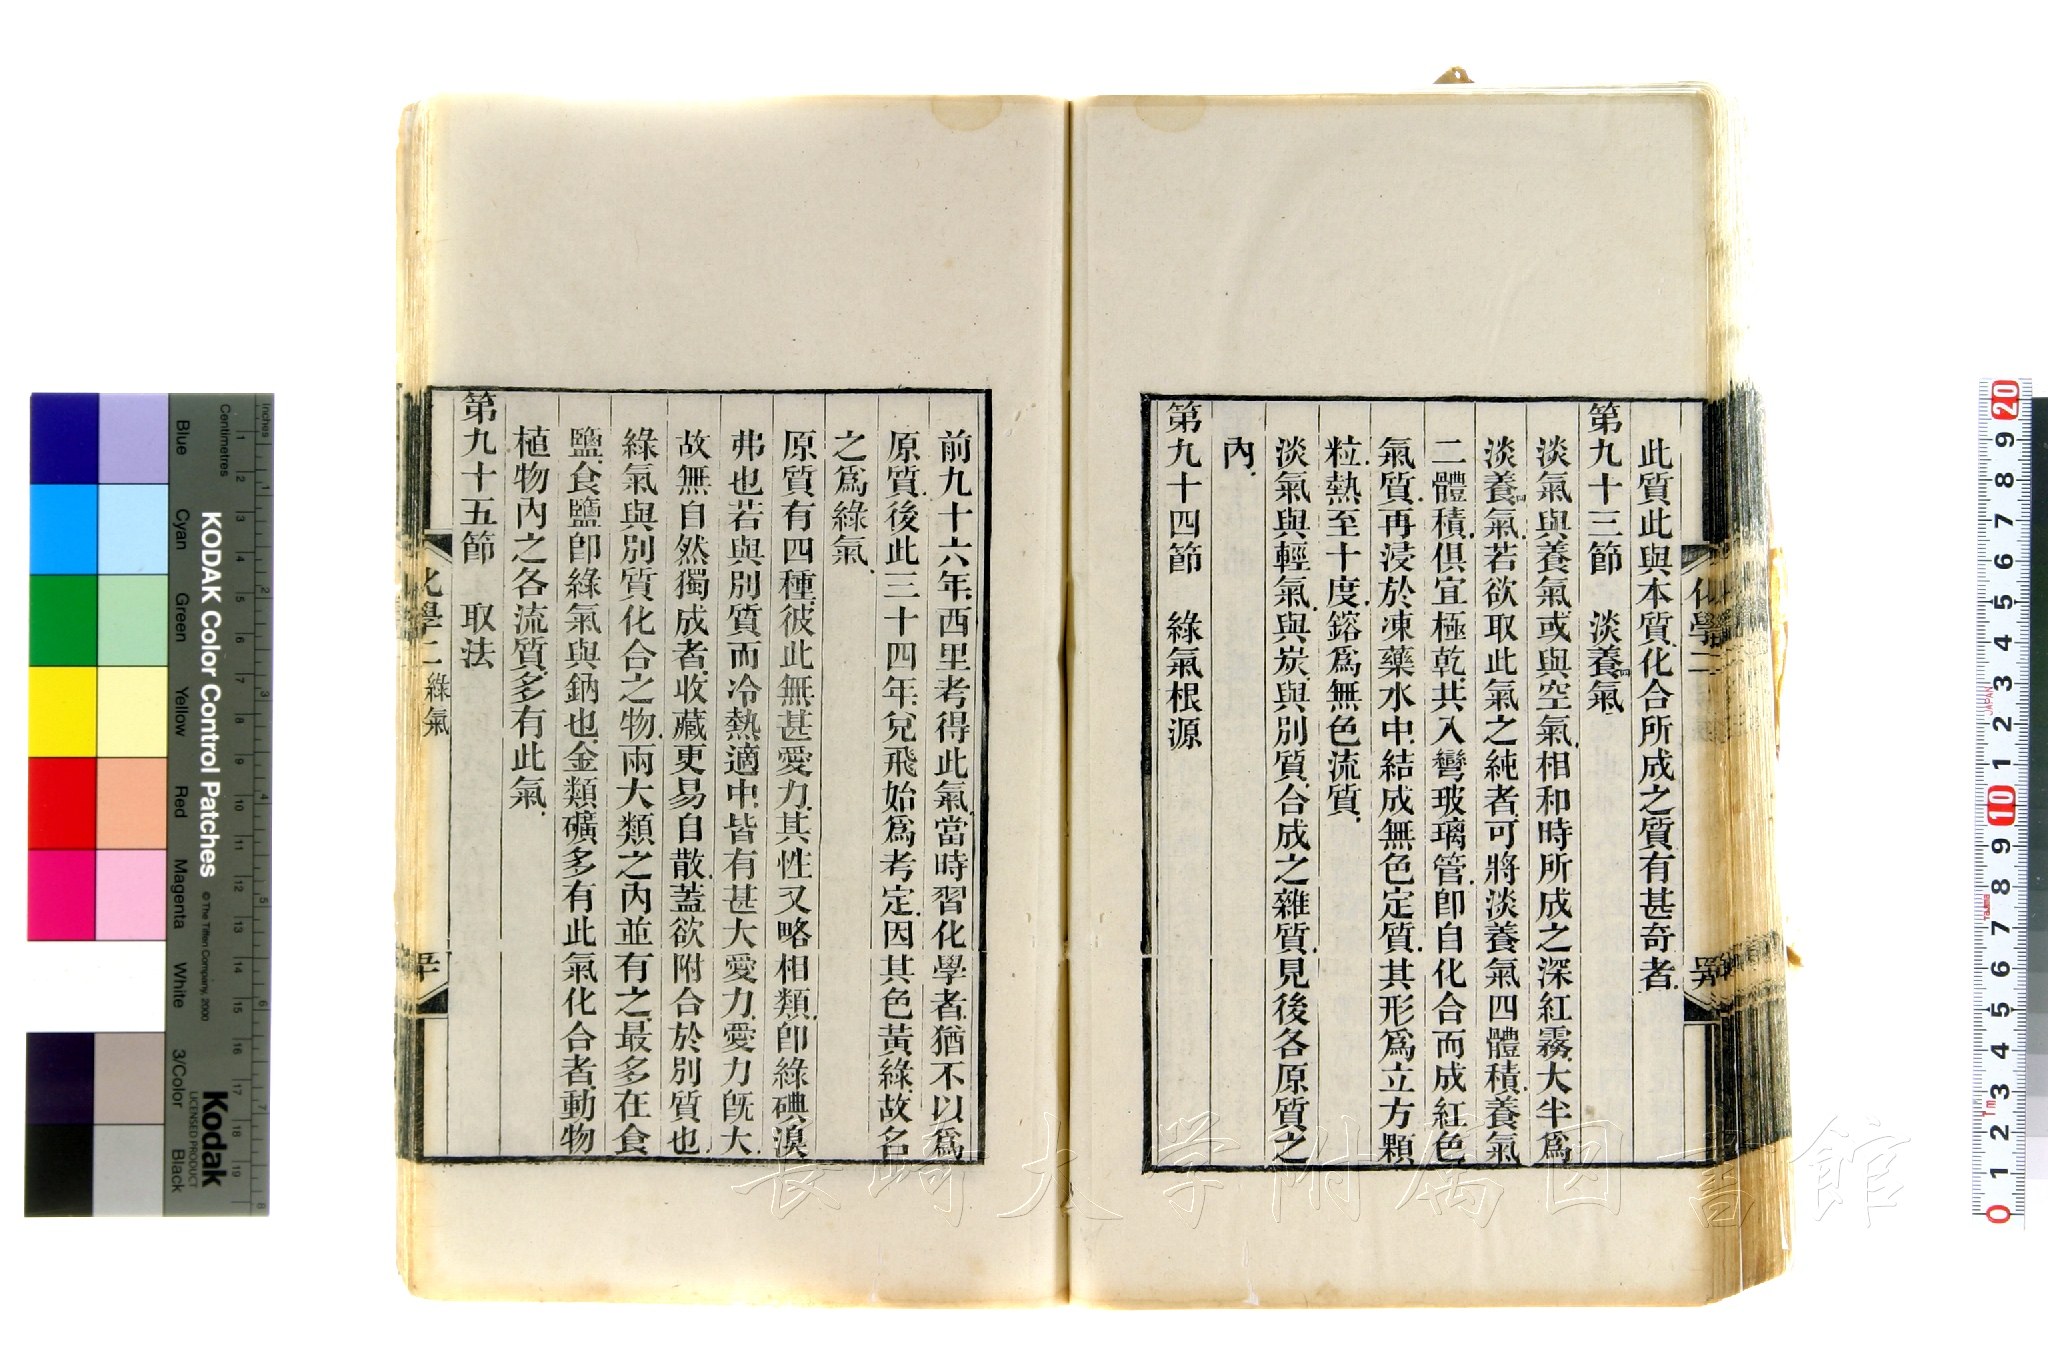 此質此與本質化合所成之質有甚奇者
第九十三節　淡養四氣
淡氣與養氣或與空氣相和時所成之深紅霧大半爲
淡養四氣若欲取此氣之純者可將淡養氣四體積養氣
二體積俱宜極乾共入彎玻璃管卽自化合而成紅色
氣質再浸於凍藥水中結成無色定質其形爲立方顆
粒熱至十度鎔爲無色流質
淡氣與輕氣與炭與別質合成之雜質見後各原質之
內
第九十四節　綠氣根源
化學二
前九十六年西里考得此氣當時習化學者猶不以爲
原質後此三十四年兌飛始爲考定因其色黃綠故名
之爲綠氣
原質有四種彼此無甚愛力其性又略相類卽綠碘溴
弗也若與別質而冷熱適中皆有甚大愛力愛力旣大
故無自然獨成者收藏更易自散蓋欲附合於別質也
綠氣與別質化合之物兩大類之內並有之最多在食
鹽食鹽卽綠氣與鈉也金類礦多有此氣化合者動物
植物內之各流質多有此氣
第九十五節　取法
化學二 綠氣
長崎大学附属図書館
KODAK Color Control Patches
© The Tiffen Company, 2000
Kodak
LICENSED PRODUCT
Inches
Centimetres
Blue
Cyan
Green
Yellow
Red
Magenta
White
3/Color
Black
1 2 3 4 5 6 7 8 9 10 11 12 13 14 15 16 17 18 19
20 9 8 7 6 5 4 3 2 1 10 9 8 7 6 5 4 3 2 1 0
JAPAN